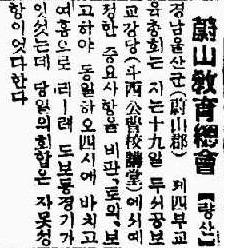 蔚山敎育總會【량산】
경남울산군(蔚山郡) 제四부교
육총회는 지는十九일 두서공보
교강당(斗西公普校講堂)에서예
정한 중요사항을 비판、토의、보
고하야 동일하오四시에 바치고
여흥으로 리—레 도보통경기가
잇섯는데 당일의회합은 자못성
황이엇다한다